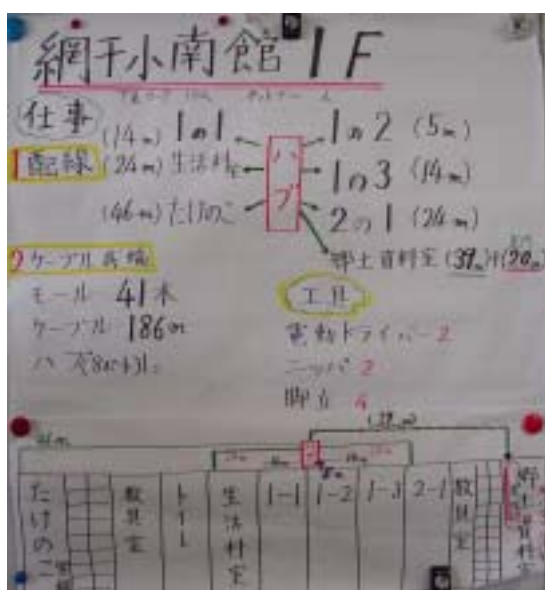 網干小南館 1F
仕事
1 配線
(14m) 1の1
(24m) 生活科室
(46m) たけのこ
ハブ
1の2 (5m)
1の3 (14m)
2の1 (24m)
郷土資料室 (39m)+(20m)
2 ケーブル
モール 41本
ケーブル 186m
工具
電動ドライバー 2
ニッパ 2
脚立 4
(39m)
たけのこ
教具室
トイレ
生活科室
1-1
1-2
1-3
2-1
教具室
郷土資料室